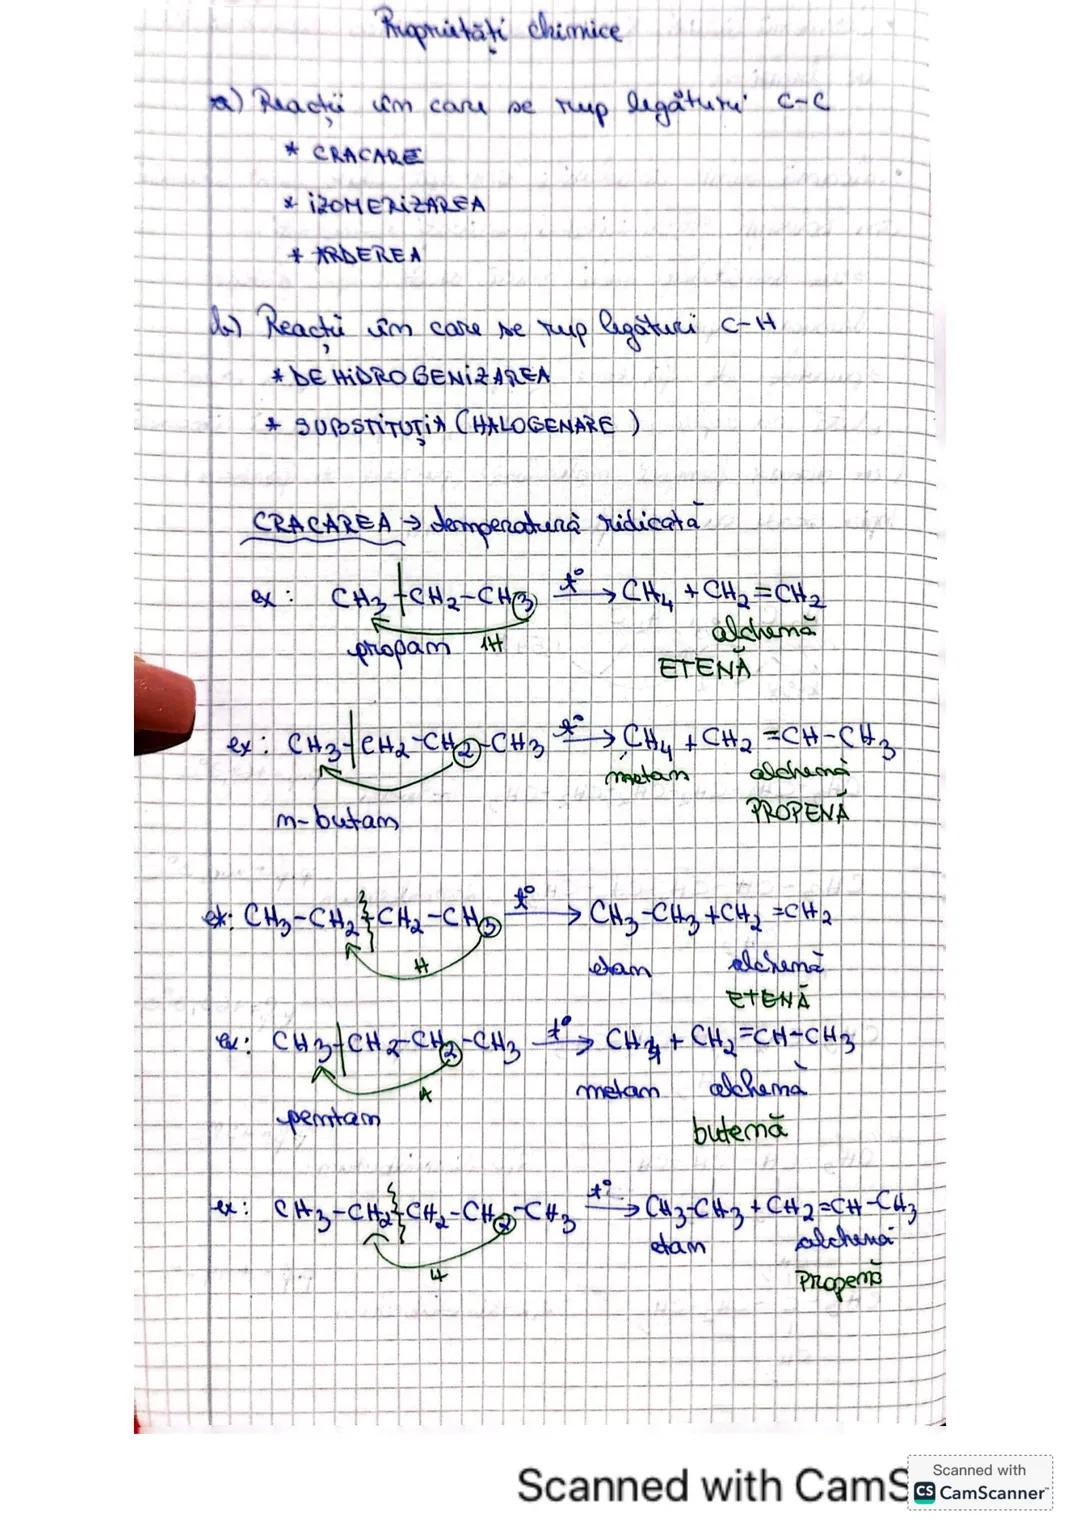 Proprietăți chimice
a) Reacții în care se rup legături C-C
* CRACARE
* IZOMERIZAREA
* ARDEREA
b) Reacții în care se rup legături C-H
* DEHIDROGENIZAREA
* SUBSTITUȚIA (HALOGENARE)
CRACAREA → temperatură ridicată
ex: CH3-CH2-CH3 t° → CH4 + CH2=CH2
propan 1H alchenă
ETENĂ
ex: CH3-CH2-CH2-CH3 t° → CH4 + CH2=CH-CH3
metan alchenă
n-butan PROPENĂ
ex: CH3-CH2-CH2-CH3 t° → CH3-CH3+CH2=CH2
H etan alchenă
ETENĂ
ex: CH3-CH2-CH2-CH3 t° → CH4 + CH2=CH-CH3
metan alchenă
pentan butenă
ex: CH3-CH2-CH2-CH2-CH3 t° → CH3-CH3 + CH2=CH-CH3
etan alchenă
H Propenă
Scanned with CamS
Scanned with
CS CamScanner